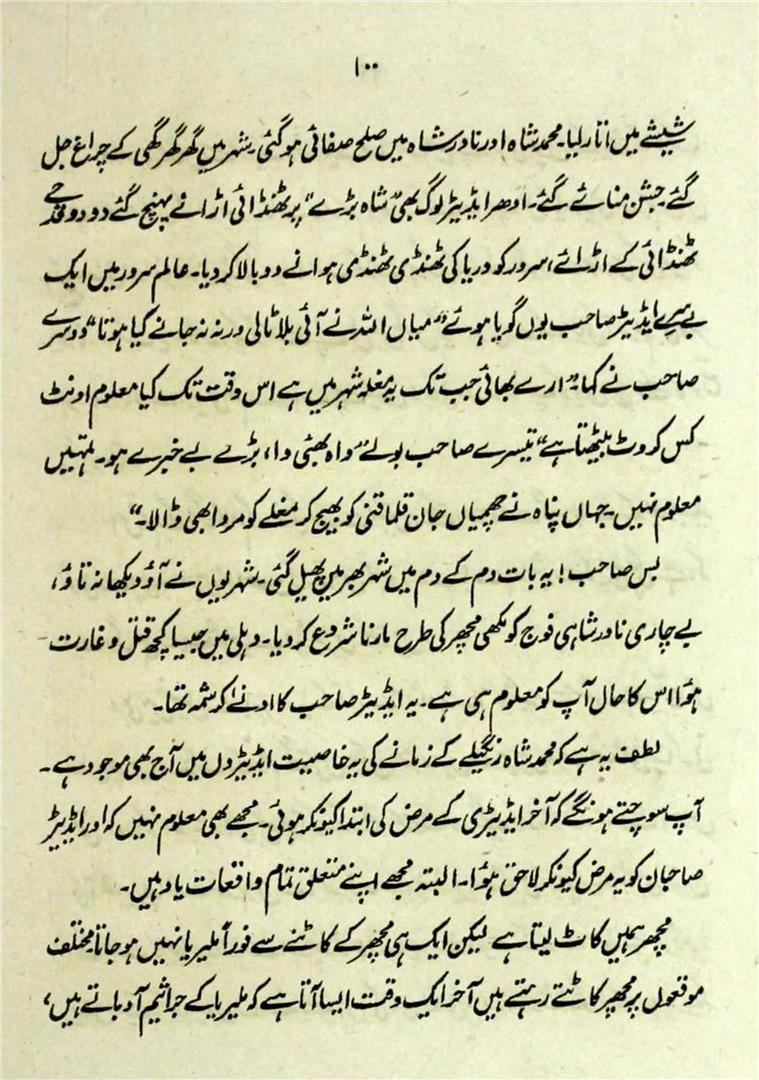 ۱۰۰
شیشے میں اتار لیا۔ محمد شاہ اور نادر شاہ میں صلح صفائی ہوگئی۔ شہر میں گھر گھر گھی کے چراغ جل
گئے جشن منائے گئے۔ ادھر ایڈیٹر لوگ بھی ”شاہ بڑے“ پر ٹھنڈائی اڑانے پہنچ گئے دو دو قدحے
ٹھنڈائی کے اڑائے، سرور کو دریا کی ٹھنڈی ٹھنڈی ہوا نے دوبالا کر دیا۔ عالم سرور میں ایک
بے سرے ایڈیٹر صاحب یوں گویا ہوئے ”میاں اللہ نے آئی بلا ٹالی ورنہ نہ جانے کیا ہوتا“ دوسرے
صاحب نے کہا ”ارے بھائی جب تک یہ مغلہ شہر میں ہے اس وقت تک کیا معلوم اونٹ
کس کروٹ بیٹھتا ہے“ تیسرے صاحب بولے ”واہ بھئی وا، بڑے بے خبرے ہو۔ تمہیں
معلوم نہیں۔ جہاں پناہ نے چھمیاں جان قلماقنی کو بھیج کر مغلے کو مروا بھی ڈالا۔“
بس صاحب! یہ بات دم کے دم میں شہر بھر میں پھیل گئی۔ شہریوں نے آؤ دیکھا نہ تاؤ،
بے چاری نادر شاہی فوج کو مکھی مچھر کی طرح مارنا شروع کر دیا۔ دہلی میں جیسا کچھ قتل و غارت
ہؤا اس کا حال آپ کو معلوم ہی ہے۔ یہ ایڈیٹر صاحب کا ادنےٰ کرشمہ تھا۔
لطف یہ ہے کہ محمد شاہ رنگیلے کے زمانے کی یہ خاصیت ایڈیٹروں میں آج بھی موجود ہے۔
آپ سوچتے ہونگے کہ آخر ایڈیٹری کے مرض کی ابتدا کیونکر ہوئی۔ مجھے بھی معلوم نہیں کہ اور ایڈیٹر
صاحبان کو یہ مرض کیونکر لاحق ہؤا۔ البتہ مجھے اپنے متعلق تمام واقعات یاد ہیں۔
مچھر ہمیں کاٹ لیتا ہے لیکن ایک ہی مچھر کے کاٹنے سے فوراً ملیریا نہیں ہو جاتا مختلف
موقعوں پر مچھر کاٹتے رہتے ہیں آخر ایک وقت ایسا آتا ہے کہ ملیریا کے جراثیم آ دباتے ہیں،